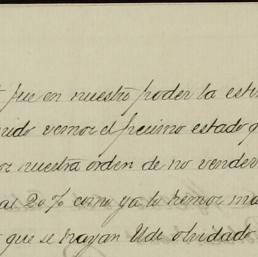 fue en nuestro poder la esti
vemos el pésimo estado q
nuestra orden de no vender
al 20% como ya lo hemos ma
que se hayan Uds olvidado